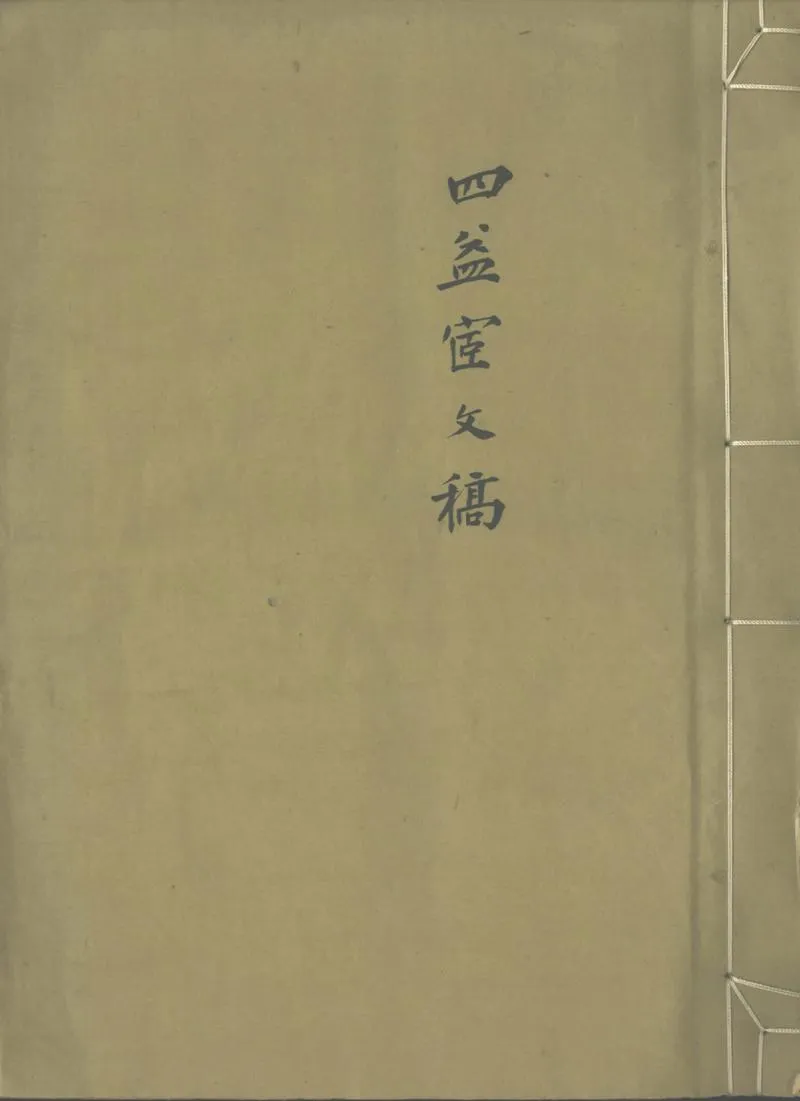 四益宧文稿